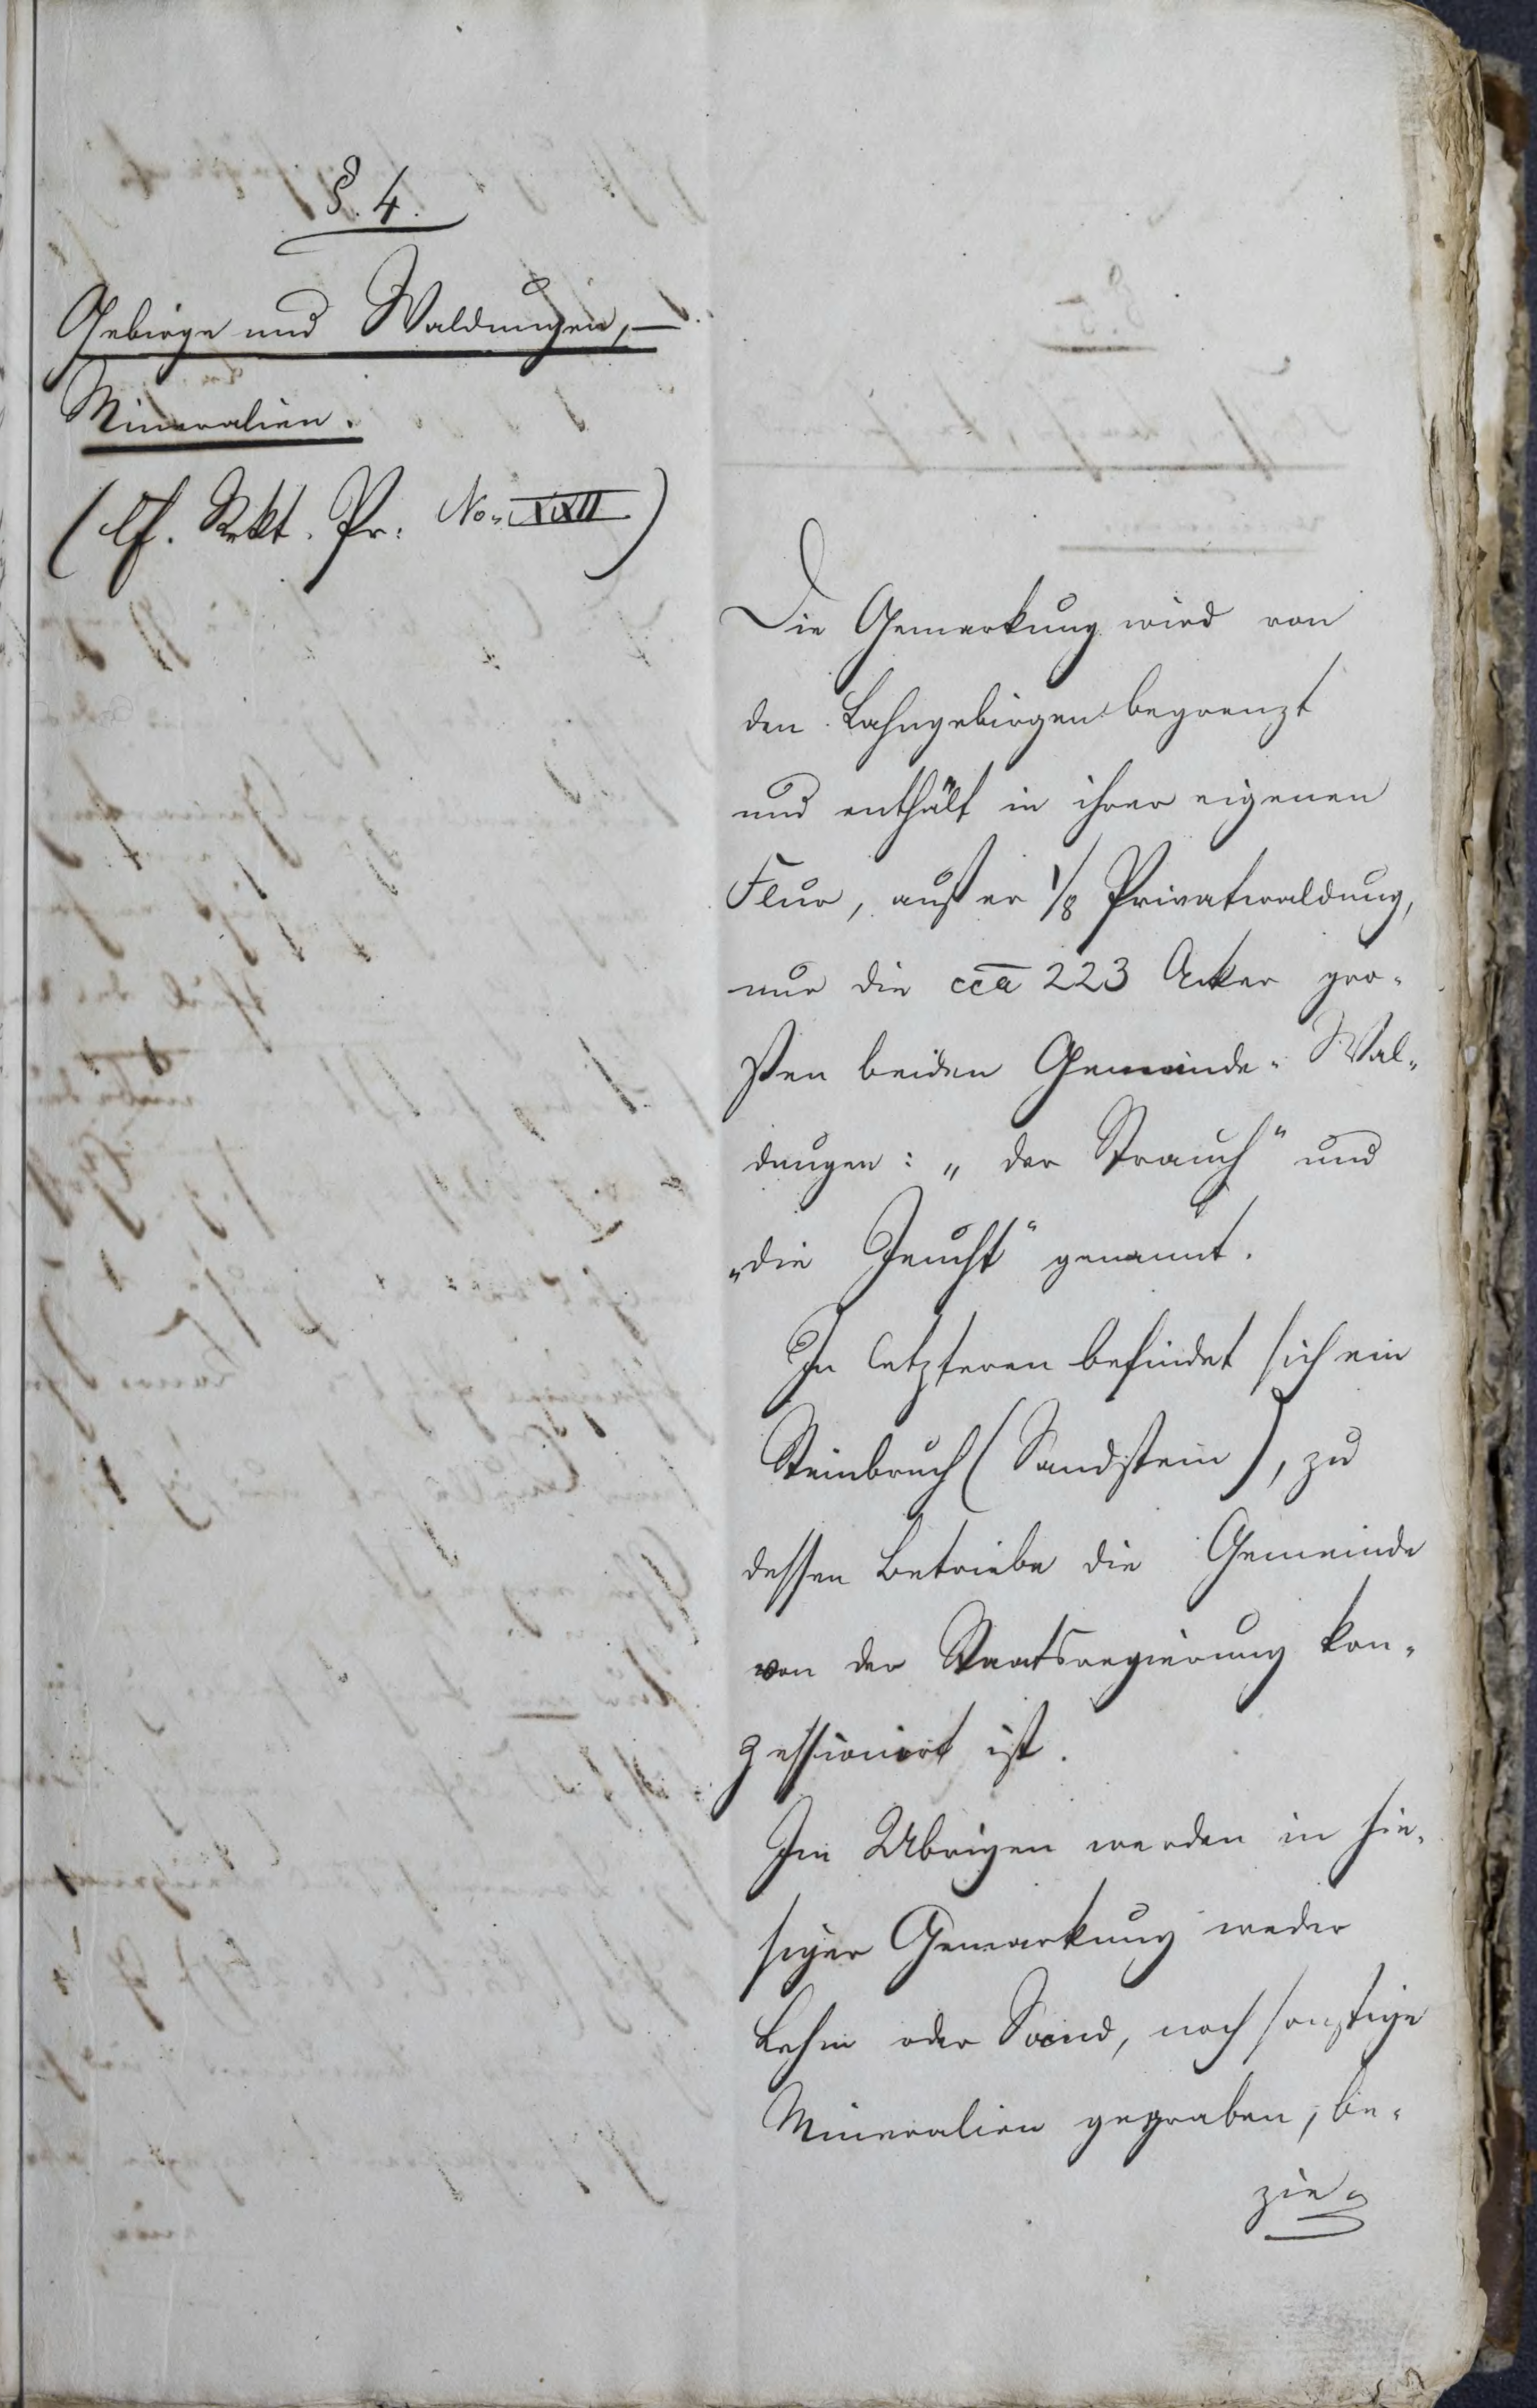 §. 4.
Gebirge und Waldungen, —
Mineralien.
(Cf. Rekt. Pr. No. XXII)
Die Gemarkung wird von
den Lahngebirgen begrenzt
und enthält in ihrer eigenen
Flur, außer 1/8 Privatwaldung,
nur die cca 223 Acker gro-
ßen beiden Gemeinde-Wal-
dungen: „der Strauch" und
„die Feucht" genannt.
In letzteren befindet sich ein
Steinbruch (Sandstein), zu
dessen Betriebe die Gemeinde
von der Staatsregierung kon-
zessionirt ist.
Im Übrigen werden in hie-
siger Gemarkung weder
Lehm oder Sand, noch sonstige
Mineralien gegraben, be-
zie-